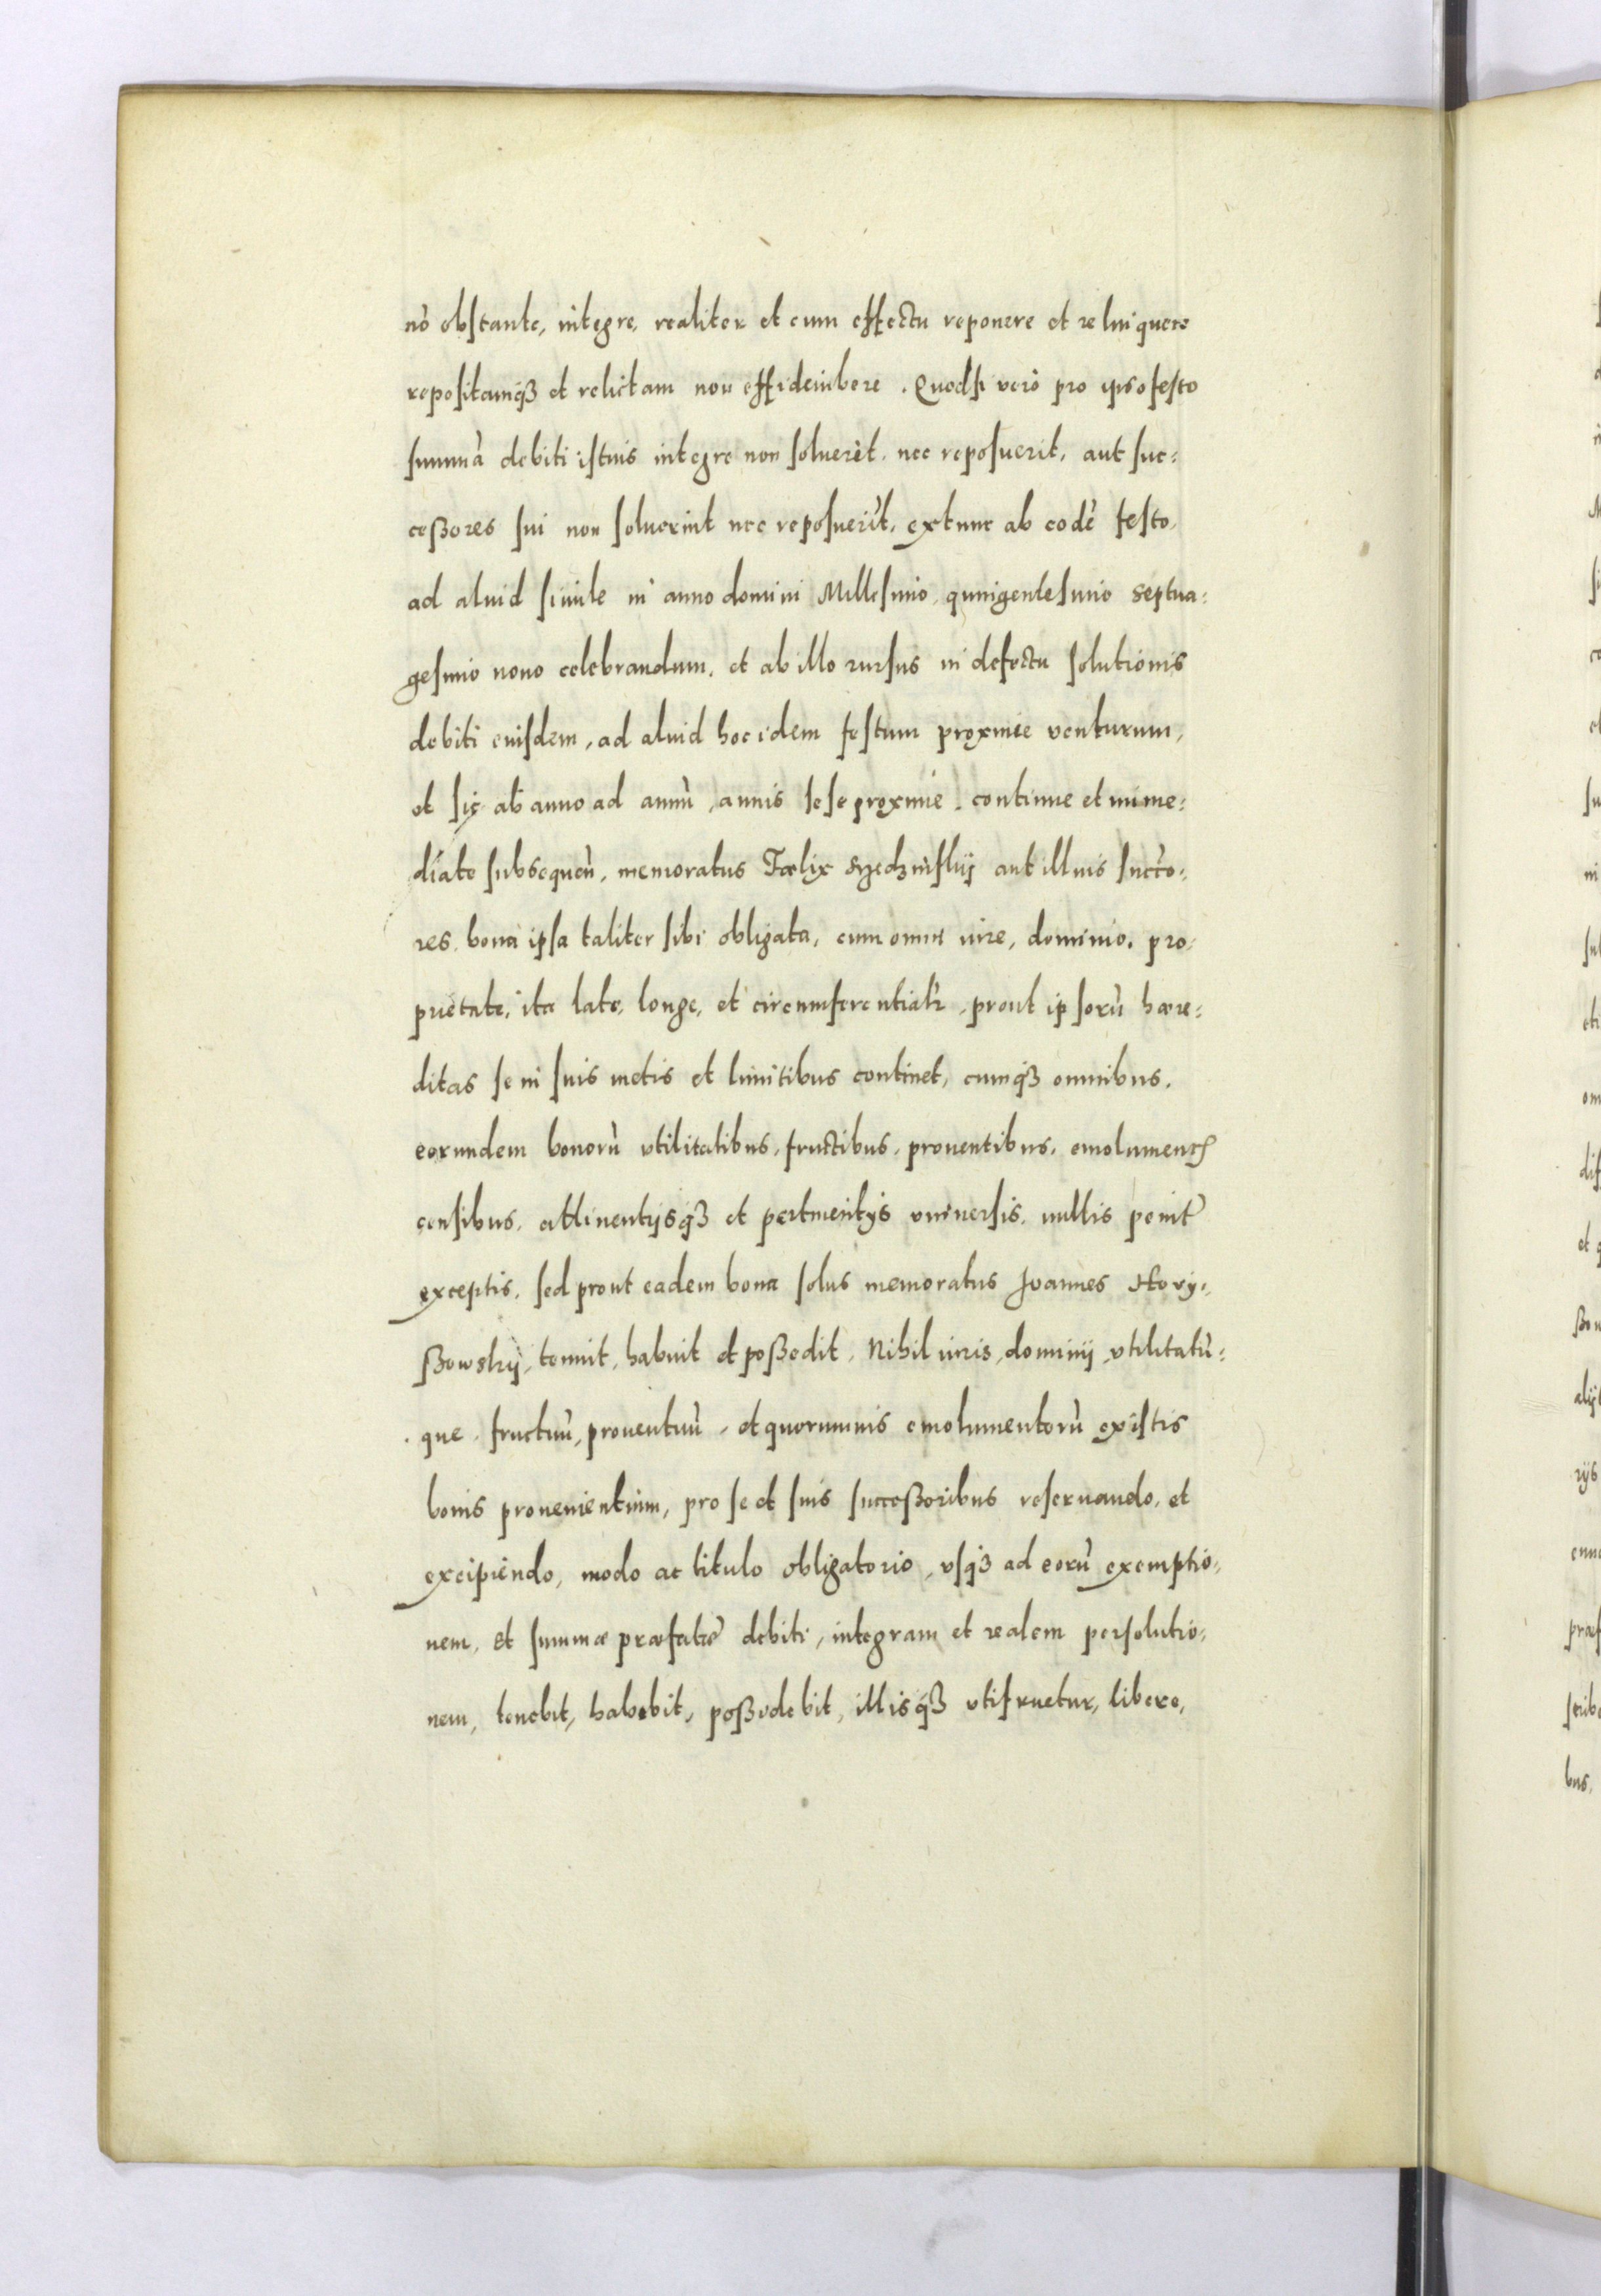 nō obstante, integre, realiter et cum effectu reponere et relinquere
repositamq₃ et relictam non effideiubere. Quodsi vero pro ipso festo
summā debiti istius integre non soluerit, nec reposuerit, aut suc:
cessores sui non soluerint nec reposuerīt, extunc ab eodē festo,
ad aliud simile in anno domini Millesimo, quingentesimo septua:
gesimo nono celebrandum, et ab illo rursus in defectu solutionis
debiti eiusdem, ad aliud hoc idem festum proxime venturum,
et sic ab anno ad annū, annis sese proxime, continue et imme:
diate subsequēn, memoratus Fœlix
aut illius succō:
res, bona ipsa taliter sibi obligata, cum omni iure, dominio, pro:
prietate, ita late, longe, et circumferentialr, prout ipsorū hære:
ditas se in suis metis et limitibus continet, cumq₃ omnibus,
eorundem bonorū vtilitatibus, fructibus, prouentibus, emolument
censibus, attinentijsq₃ et pertinentijs vniuersis, nullis penit
exceptis, sed prout eadem bona solus memoratus Joannes Hory:
ßowskij, tenuit, habuit et possedit, Nihil iuris, dominij, vtilitatū:
que, fructuū, prouentuū, et quorumuis emolumentorū ex istis
bonis prouenientium, pro se et suis successoribus reseruando, et
excipiendo, modo ac titulo obligatorio, vsq₃ ad eorū exemptio:
nem, et summæ præfatæ debiti, integram et realem persolutio:
nem, tenebit, habebit, possidebit, illisq₃ vtifruetur, libere,